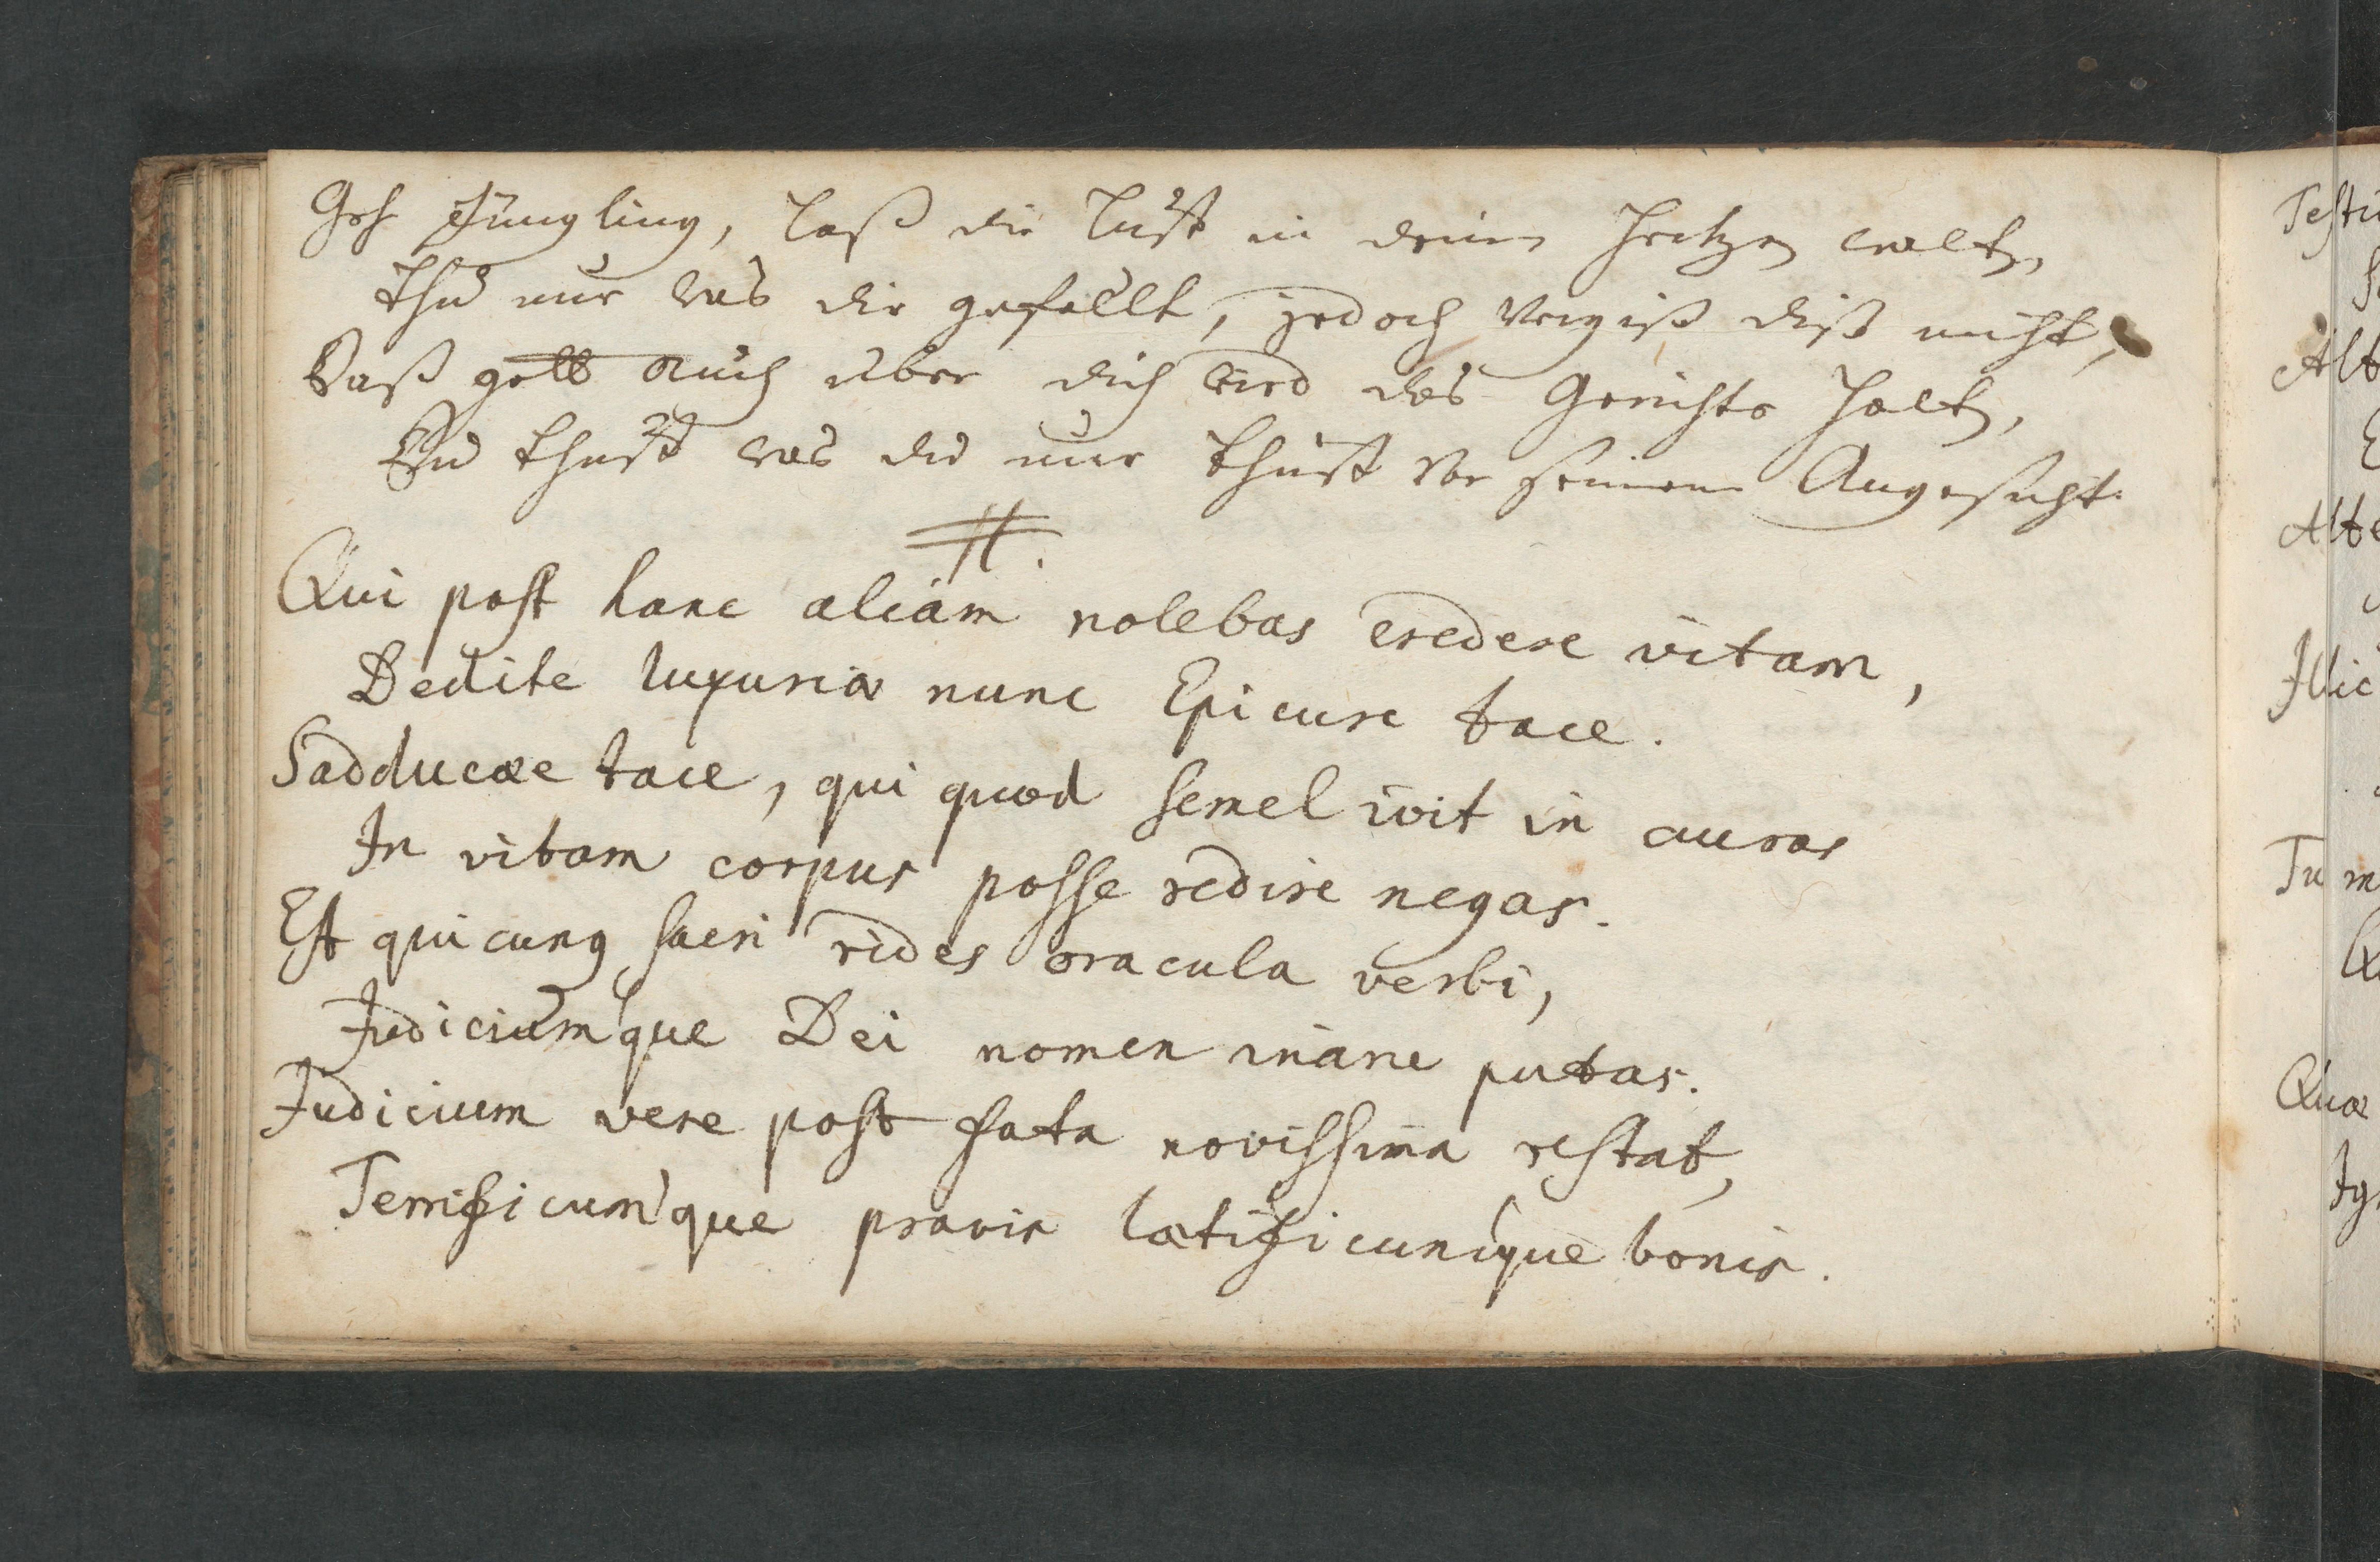 Geh Jüngling, laß die Lust in deinem Hertzen walten,
Thu nur was dir gefällt, jedoch vergiß diß nicht,
Daß gott auch über dich wird das Gerichte halten,
Du thust was du nur thust vor seinem Angesicht.
Qui post hanc aliam nolebas credere vitam,
Dedite luxuriæ nunc Epicure tace.
Sadducæe tace, qui quod semel ivit in auras
In vitam corpus posse redire negas.
Et quicunq sacri rides oracula verbi,
Judiciumque Dei nomen inane putas.
Judicium vere post fata novissima restat,
Terrificumque pravis lætificumque bonis.
Testi
Alt
Alte
Illic
Tu m
Quæ
Ig